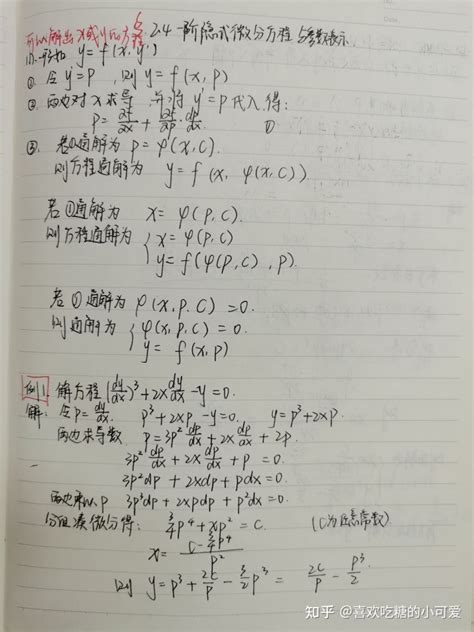 可以解出x或y的方程 2.4 一阶隐式微分方程与参数表示
(1). 形如 y=f(x,y')
①. 令 y'=p, 则 y=f(x,p)
②. 两边对x求导,并将y'=p代入得:
p=∂f/∂x+∂f/∂p·dp/dx ①
③. 若①通解为 p=φ(x,C).
则方程通解为 y=f(x, φ(x,C))
若①通解为 x=φ(p,C).
则方程通解为 { x=φ(p,C)
y=f(φ(p,C),p).
若①通解为 φ(x,p,C)=0.
则通解为 { φ(x,p,C)=0.
y=f(x,p)
例1. 解方程(dy/dx)³+2x dy/dx-y=0.
解: 令p=dy/dx. p³+2xp-y=0. y=p³+2xp.
两边求导数 p=3p² dp/dx+2x dp/dx+2p.
3p² dp/dx+2x dp/dx+p=0.
3p²dp+2xdp+pdx=0.
两边乘以p 3p³dp+2xpdp+p²dx=0.
分组凑微分得: 3/4p⁴+xp²=C. (C为任意常数)
x=(C-3/4p⁴)/p²
则 y=p³+2C/p-3/2p³=2C/p-p³/2
知乎 @喜欢吃糖的小可爱